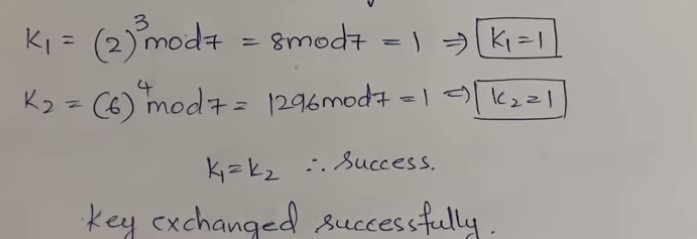 K₁ = (2)³mod7 = 8mod7 = 1 ⇒ K₁=1
K₂ = (6)⁴mod7 = 1296mod7 = 1 ⇒ K₂=1
K₁=K₂ ∴ Success.
Key exchanged successfully.